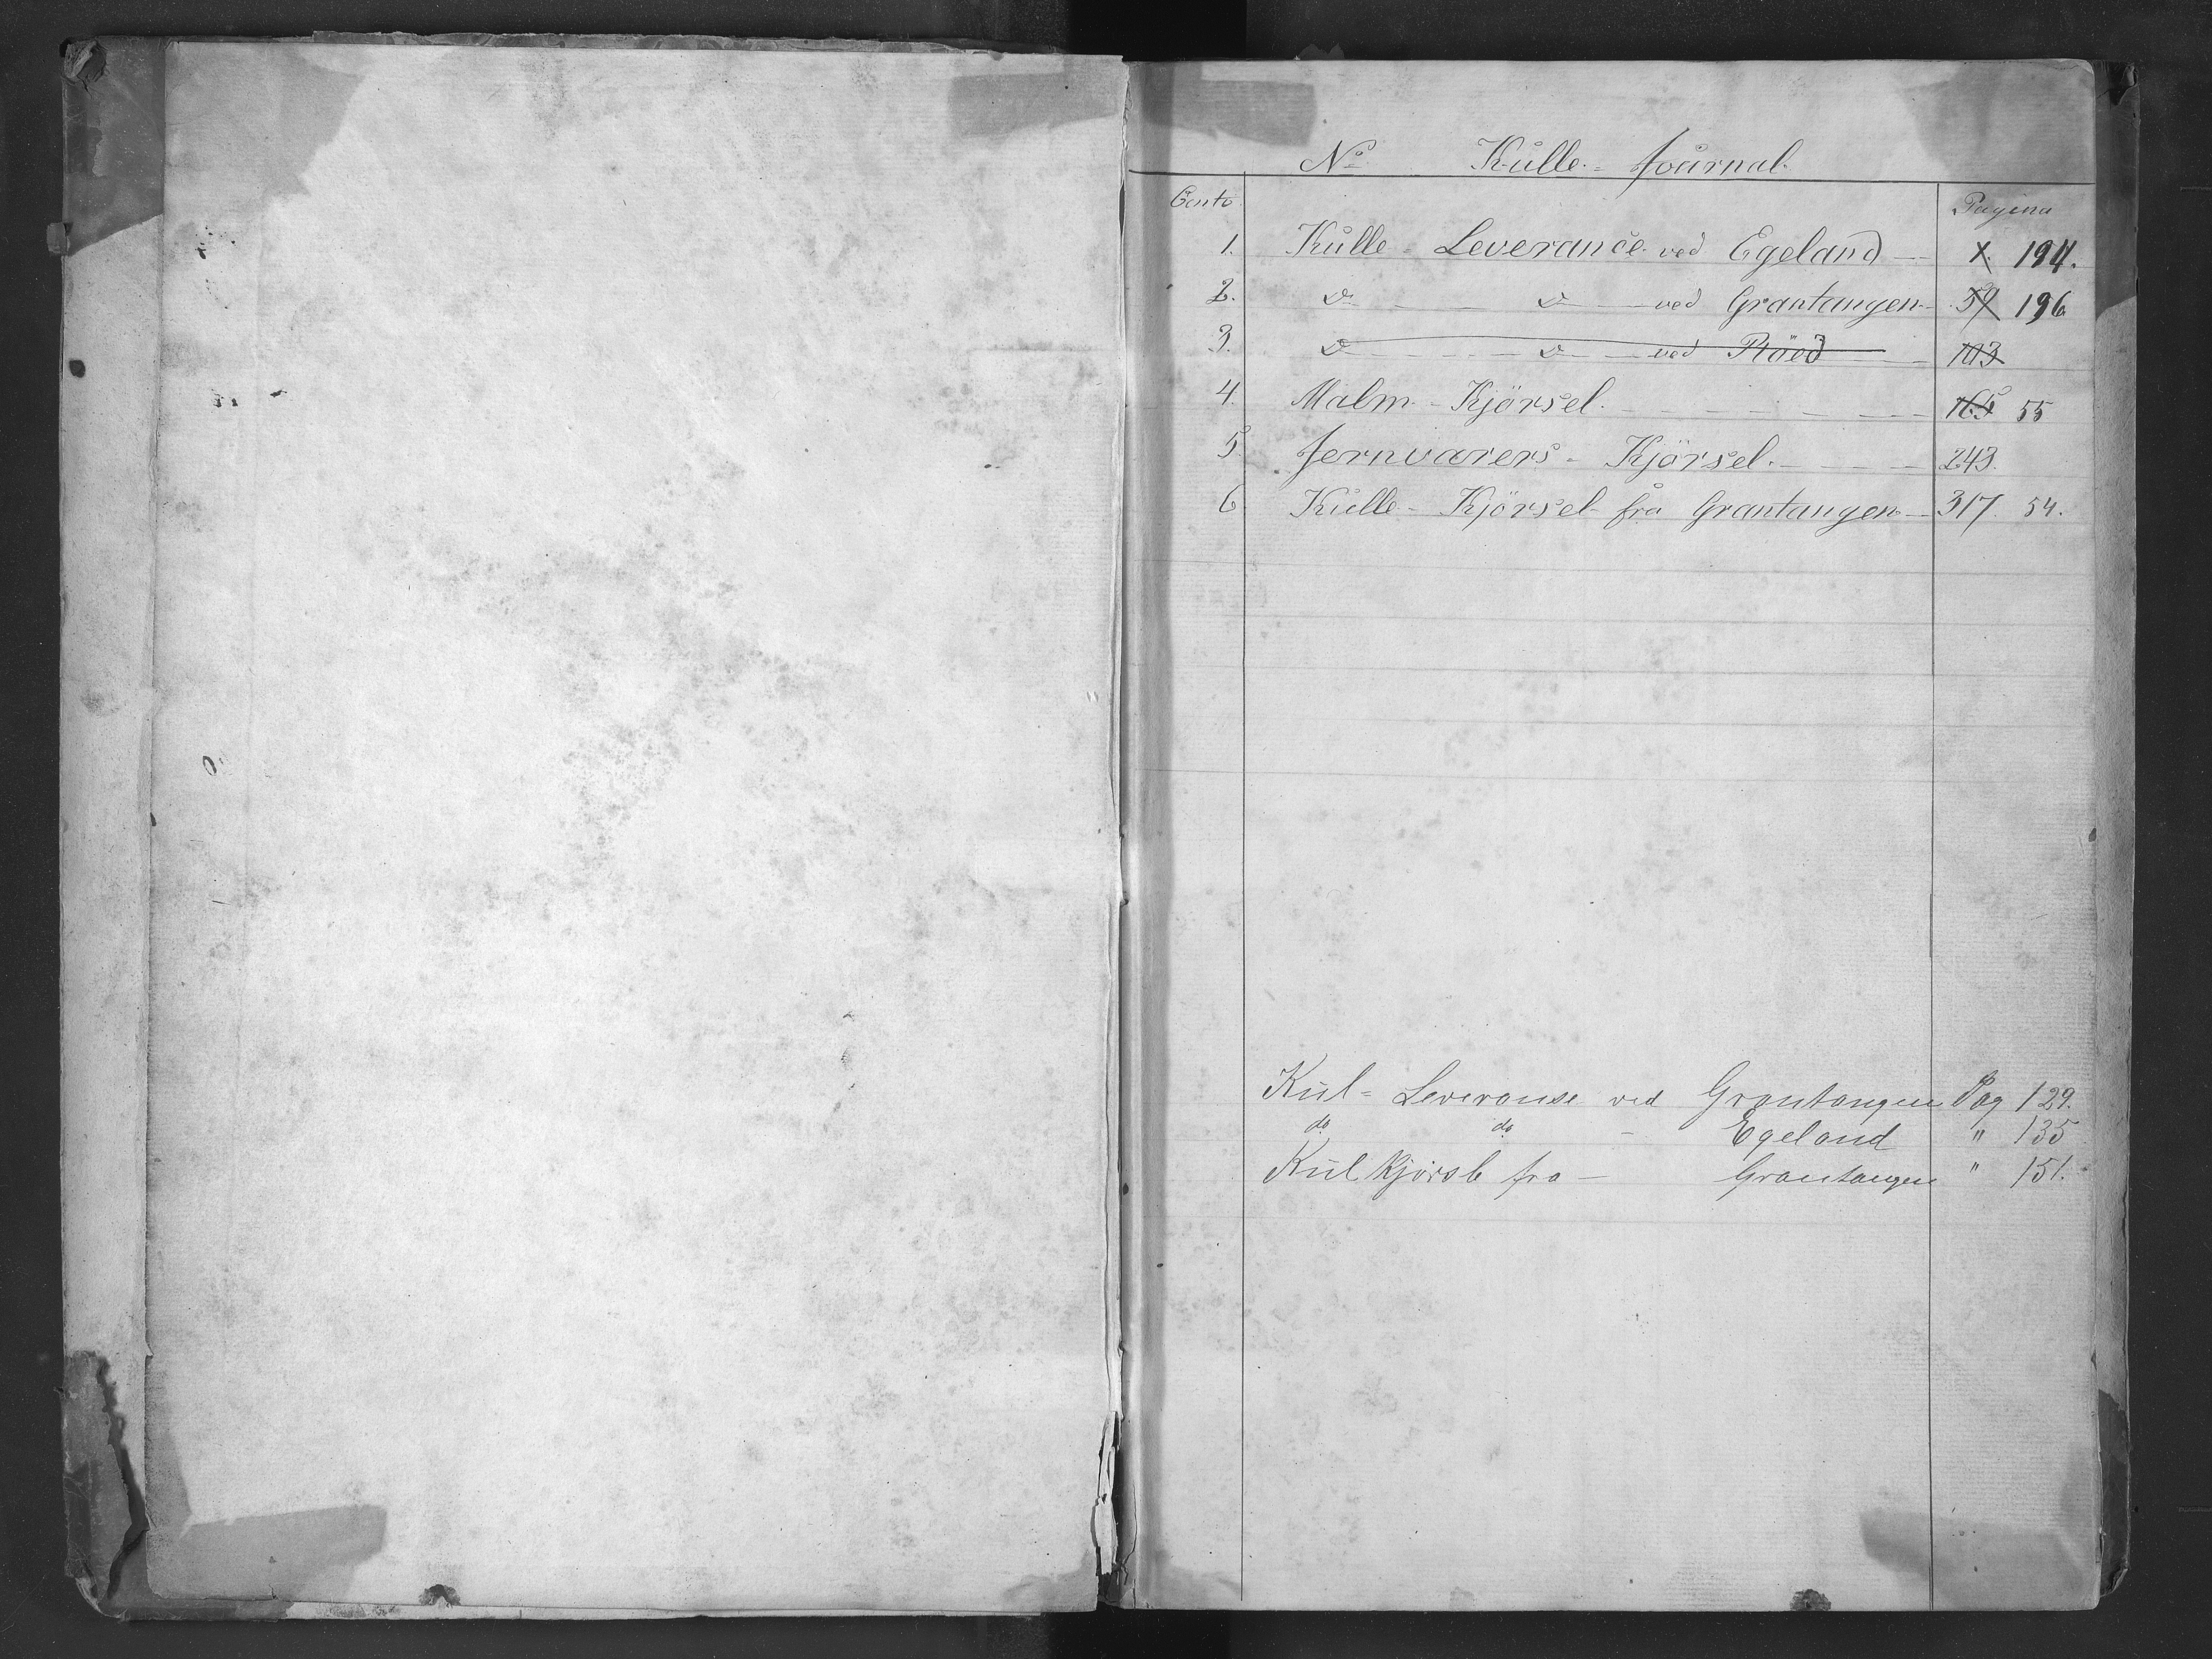 No Kulle - Journal.
Conto. Pagina
1. Kulle - Leverance ved Egeland 1. 194.
2. do do ved Grantangen 59 196
3. do do ved Röed 103
4. Malm - Kjörsel. 165 55
5. Jernvarers - Kjörsel. 243.
6 Kulle - Kjörsel fra Grantangen 317 54.
Kul - Leveranse ved Grantangen Pag 129.
do do - Egeland " 135
Kul Kjörsle fra - Grantangen " 151.